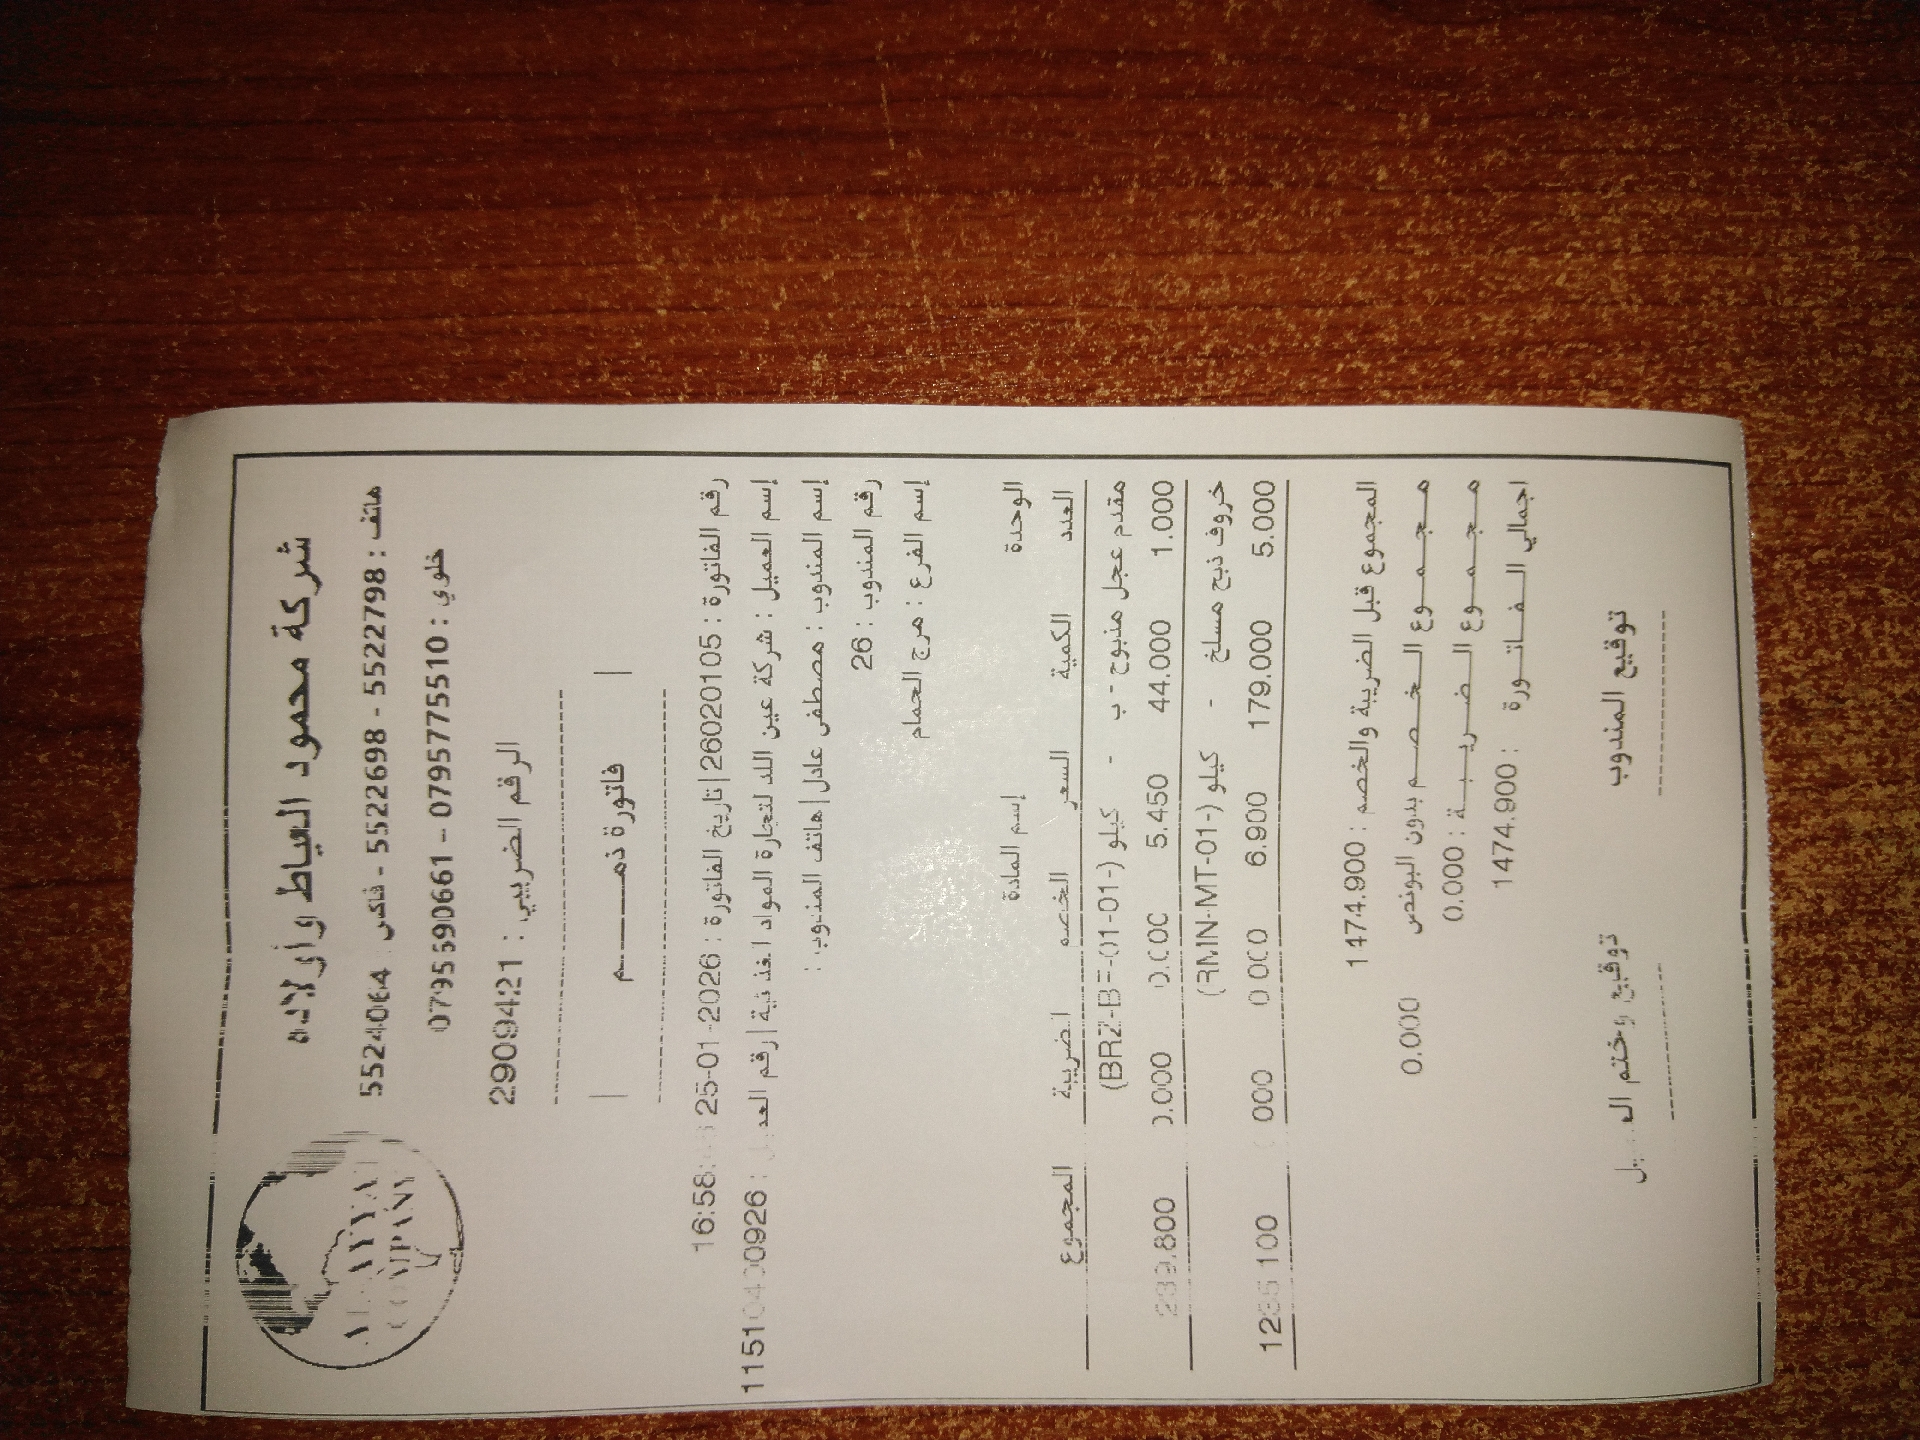 شركة محمود العياط وأولاده
هاتف : 5522798 - 5522698 - فاكس 5524064
خلوي : 0795775510 - 0795590661
الرقم الضريبي : 2909421
فاتورة ذمــــــم
رقم الفاتورة : 26020105|تاريخ الفاتورة : 2026-01-25 16:58:
إسم العميل : شركة عين اللد لتجارة المواد الغذائية|رقم العميل : 11510400926
إسم المندوب : مصطفى عادل|هاتف المندوب :
رقم المندوب : 26
إسم الفرع : مرج الحمام
الوحدة إسم المادة
العدد الكمية السعر الخصم الضريبة المجموع
مقدم عجل مذبوح - ب - كيلو (-BRZ-BF-01-01)
1.000 44.000 5.450 0.000 0.000 239.800
خروف ذبح مسلخ - كيلو (-RMN-MT-01)
5.000 179.000 6.900 0.000 0.000 1235.100
المجموع قبل الضريبة والخصم : 1474.900
مـجـمـوع الـخـصـم بدون البونص 0.000
مـجـمـوع الـضـريـبـة : 0.000
اجمالي الـفـاتـورة : 1474.900
توقيع المندوب توقيع وختم العميل